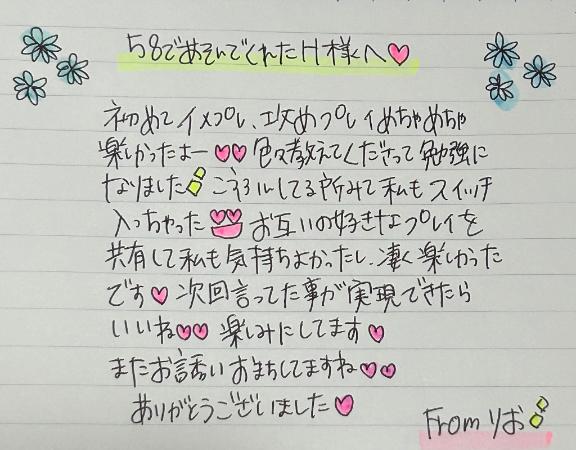 58であそんでくれたH様へ♡
初めてイメプレ、攻めプレイめちゃめちゃ
楽しかったよー♡♡ 色々教えてくださって勉強に
なりました こうふんしてる所みて私もスイッチ
入っちゃった♡♡ お互いの好きなプレイを
共有して私も気持ちよかったし、凄く楽しかった
です♡ 次回言ってた事が実現できたら
いいね♡♡ 楽しみにしてます♡
またお誘いおまちしてますね♡♡
ありがとうございました♡
From りお